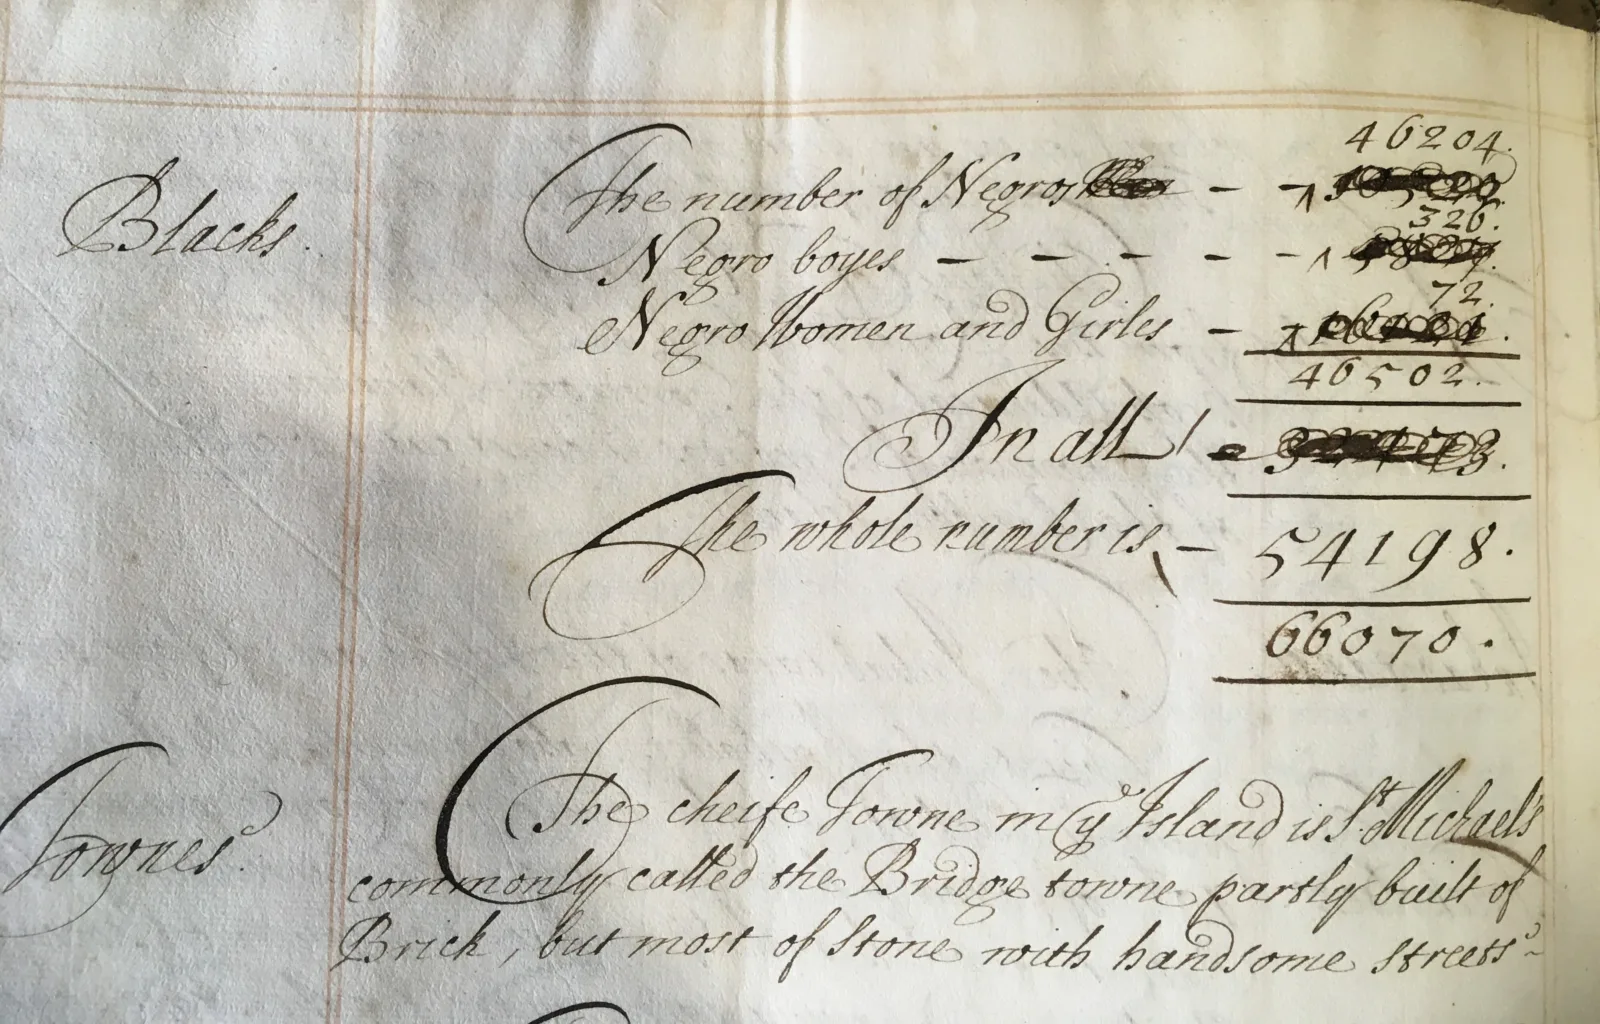 46204.
Blacks. The number of Negros - - ^
326.
Negro boyes - - - - - ^
72.
Negro Women and Girles - ^
46502.
In all
The whole number is - 54198.
66070.
Townes The cheife Towne in ye Island is St Michael's
commonly called the Bridge towne partly built of
Brick, but most of stone with handsome streets